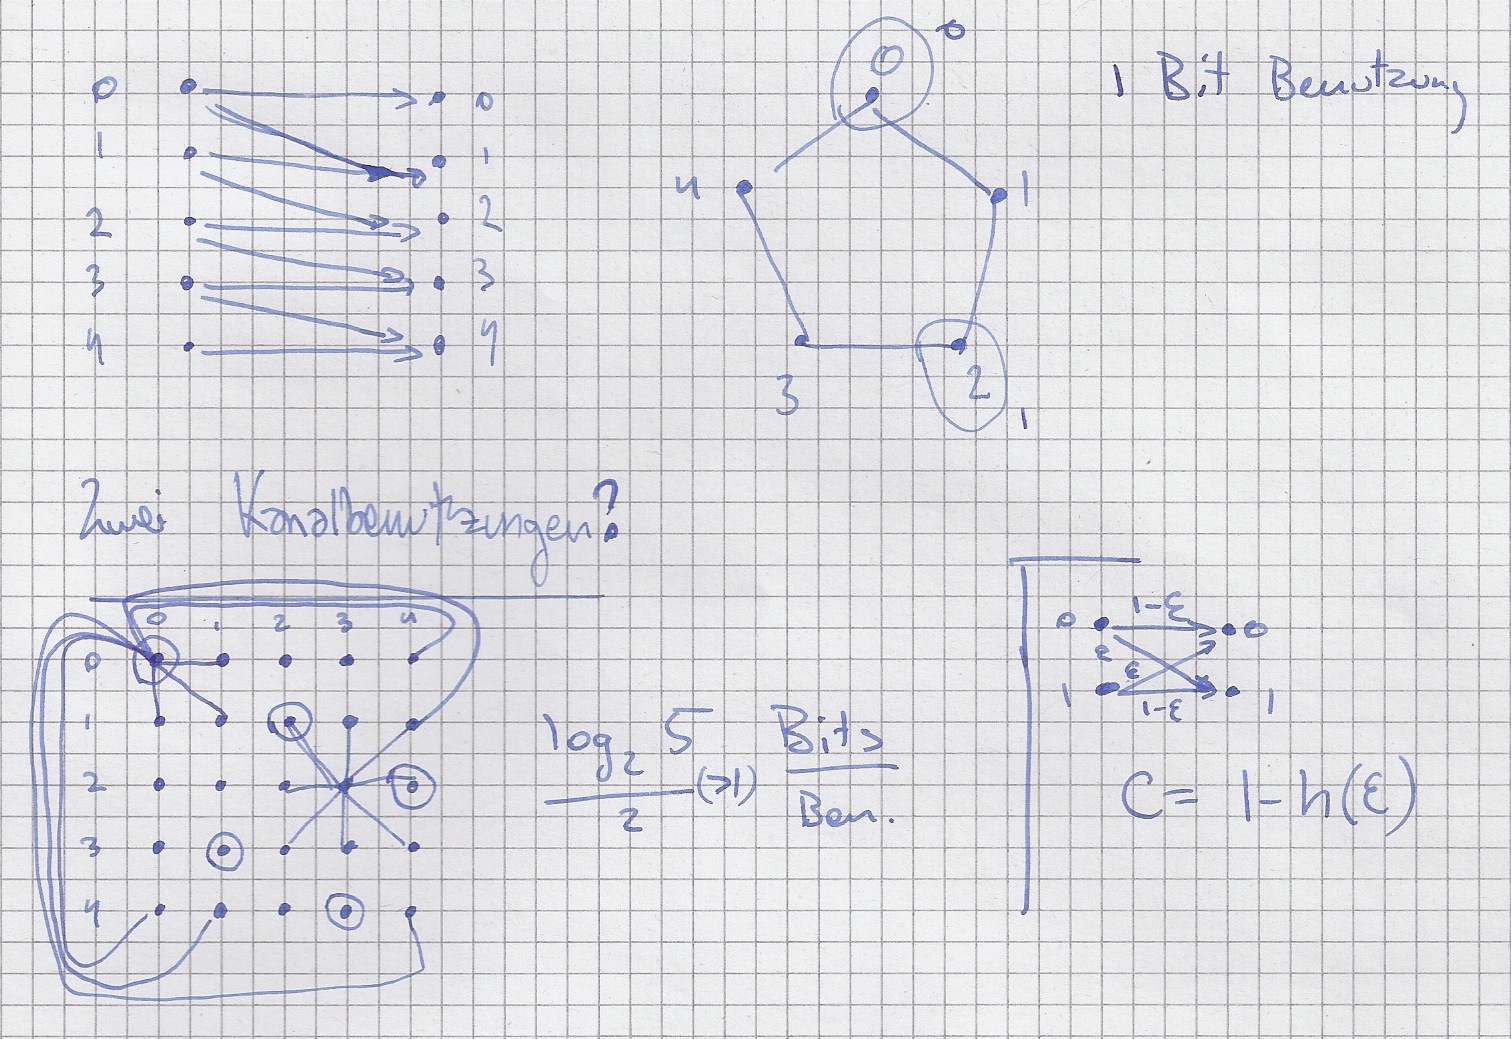 0 0
1 1
2 2
3 3
4 4
0 0
4 1
3 2 1
1 Bit Benutzung
Zwei Kanalbenutzungen?
0 1 2 3 4
0
1
2
3
4
log₂ 5 / 2 (>1) Bits / Ben.
0 1-ε 0
ε ε
1 1-ε 1
C = 1 - h(ε)